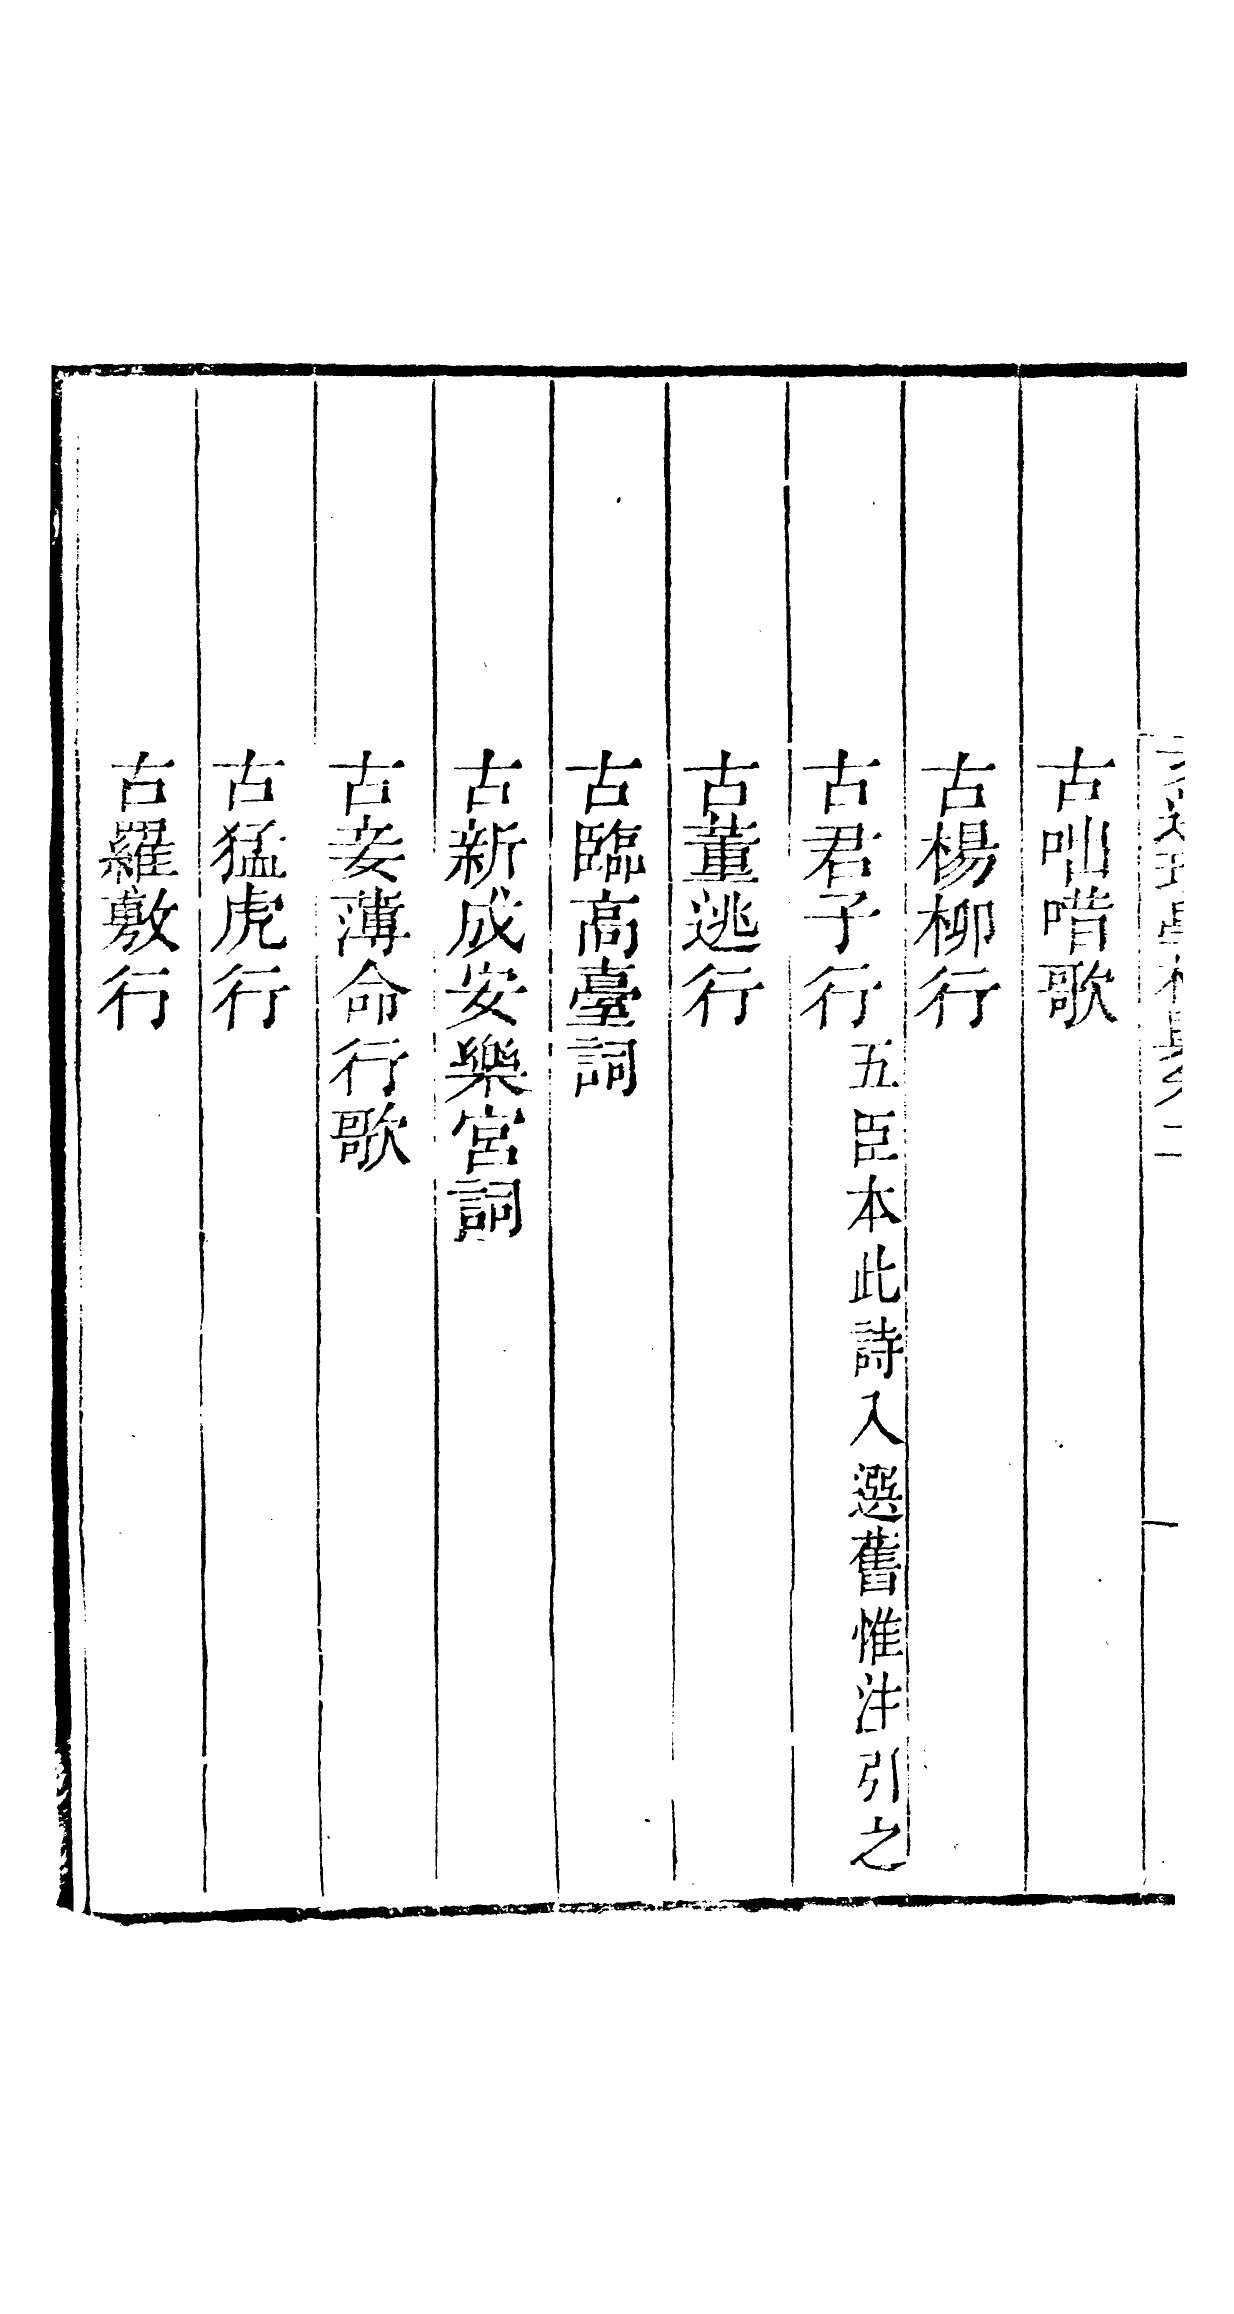 古咄唶歌
古楊柳行
古君子行五臣本此詩入選舊惟注引之
古董逃行
古臨高臺詞
古新成安樂宮詞
古妾薄命行歌
古猛虎行
古羅敷行